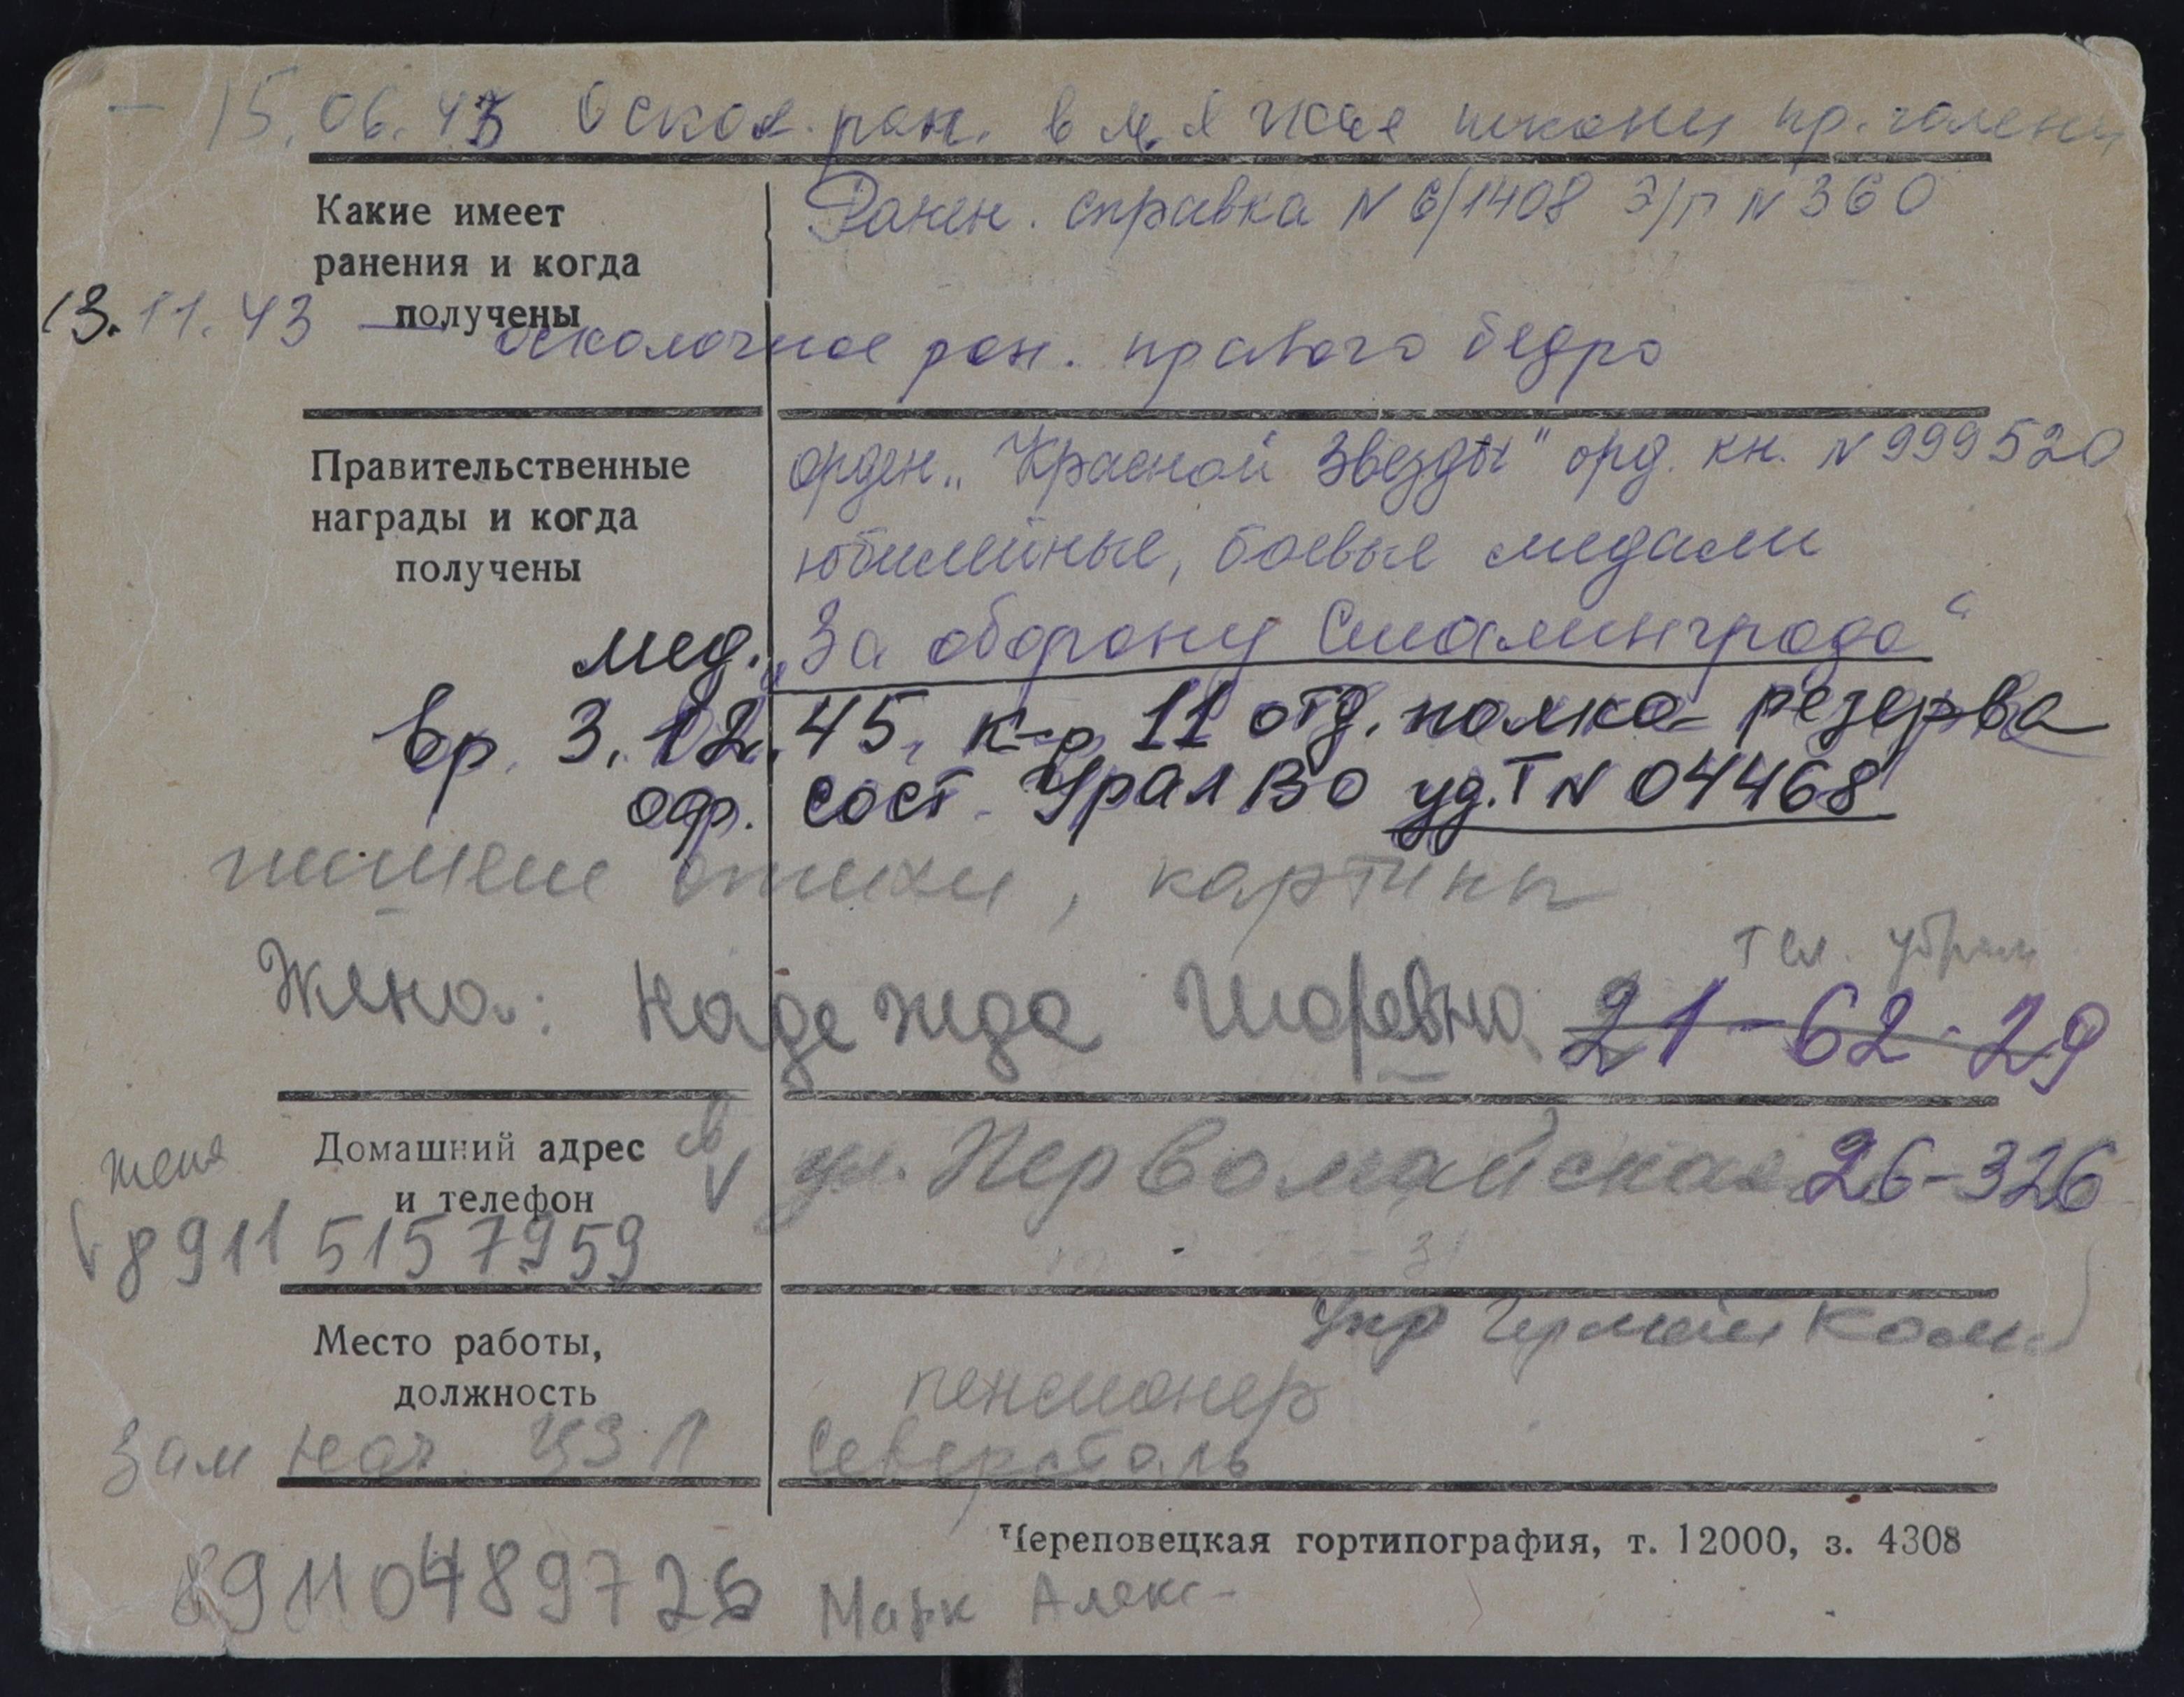 — 15.06.43 Оскол. ран. в мягкие ткани пр. голени
Какие имеет ранения и когда получены
Ранен. справка N 6/1408 Э/Г N 360
13.11.43 — осколочное ран. правого бедра
Правительственные награды и когда получены
орден „Красной Звезды" орд. кн. N 999520
юбилейные, боевые медали
мед. „За оборону Сталинграда“
вр. 3.12.45, к-р 11 отд. полка резерва
оф. сост. УралВО уд. Т N 04468
пишет стихи, картины
тел. убрали
Жена: Надежда 21-62-29
Домашний адрес и телефон
ул. Первомайская 26-326
жена
8911 5157959
Место работы, должность
пенсионер
Зам нач. Северсталь
Череповецкая гортипография, т. 12000, з. 4308
89110489726 Марк Алекс-